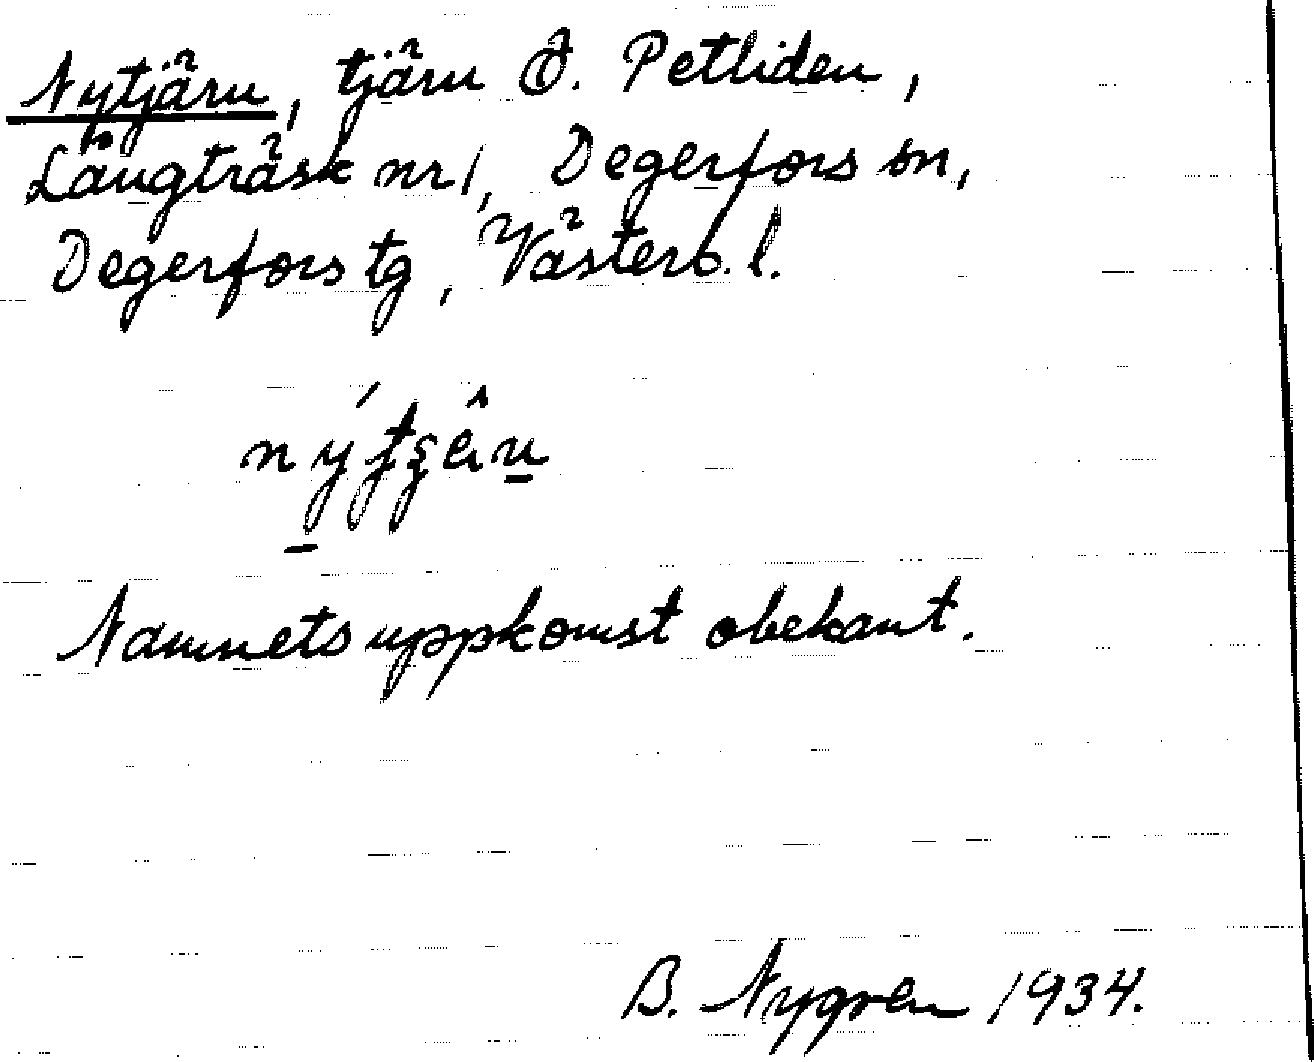 Nytjärn, tjärn Ö. Petliden,
Långträsk nr 1, Degerfors sn,
Degerfors tg, Västerb. l.
Namnets uppkomst obekant.
B. Nygren 1934.